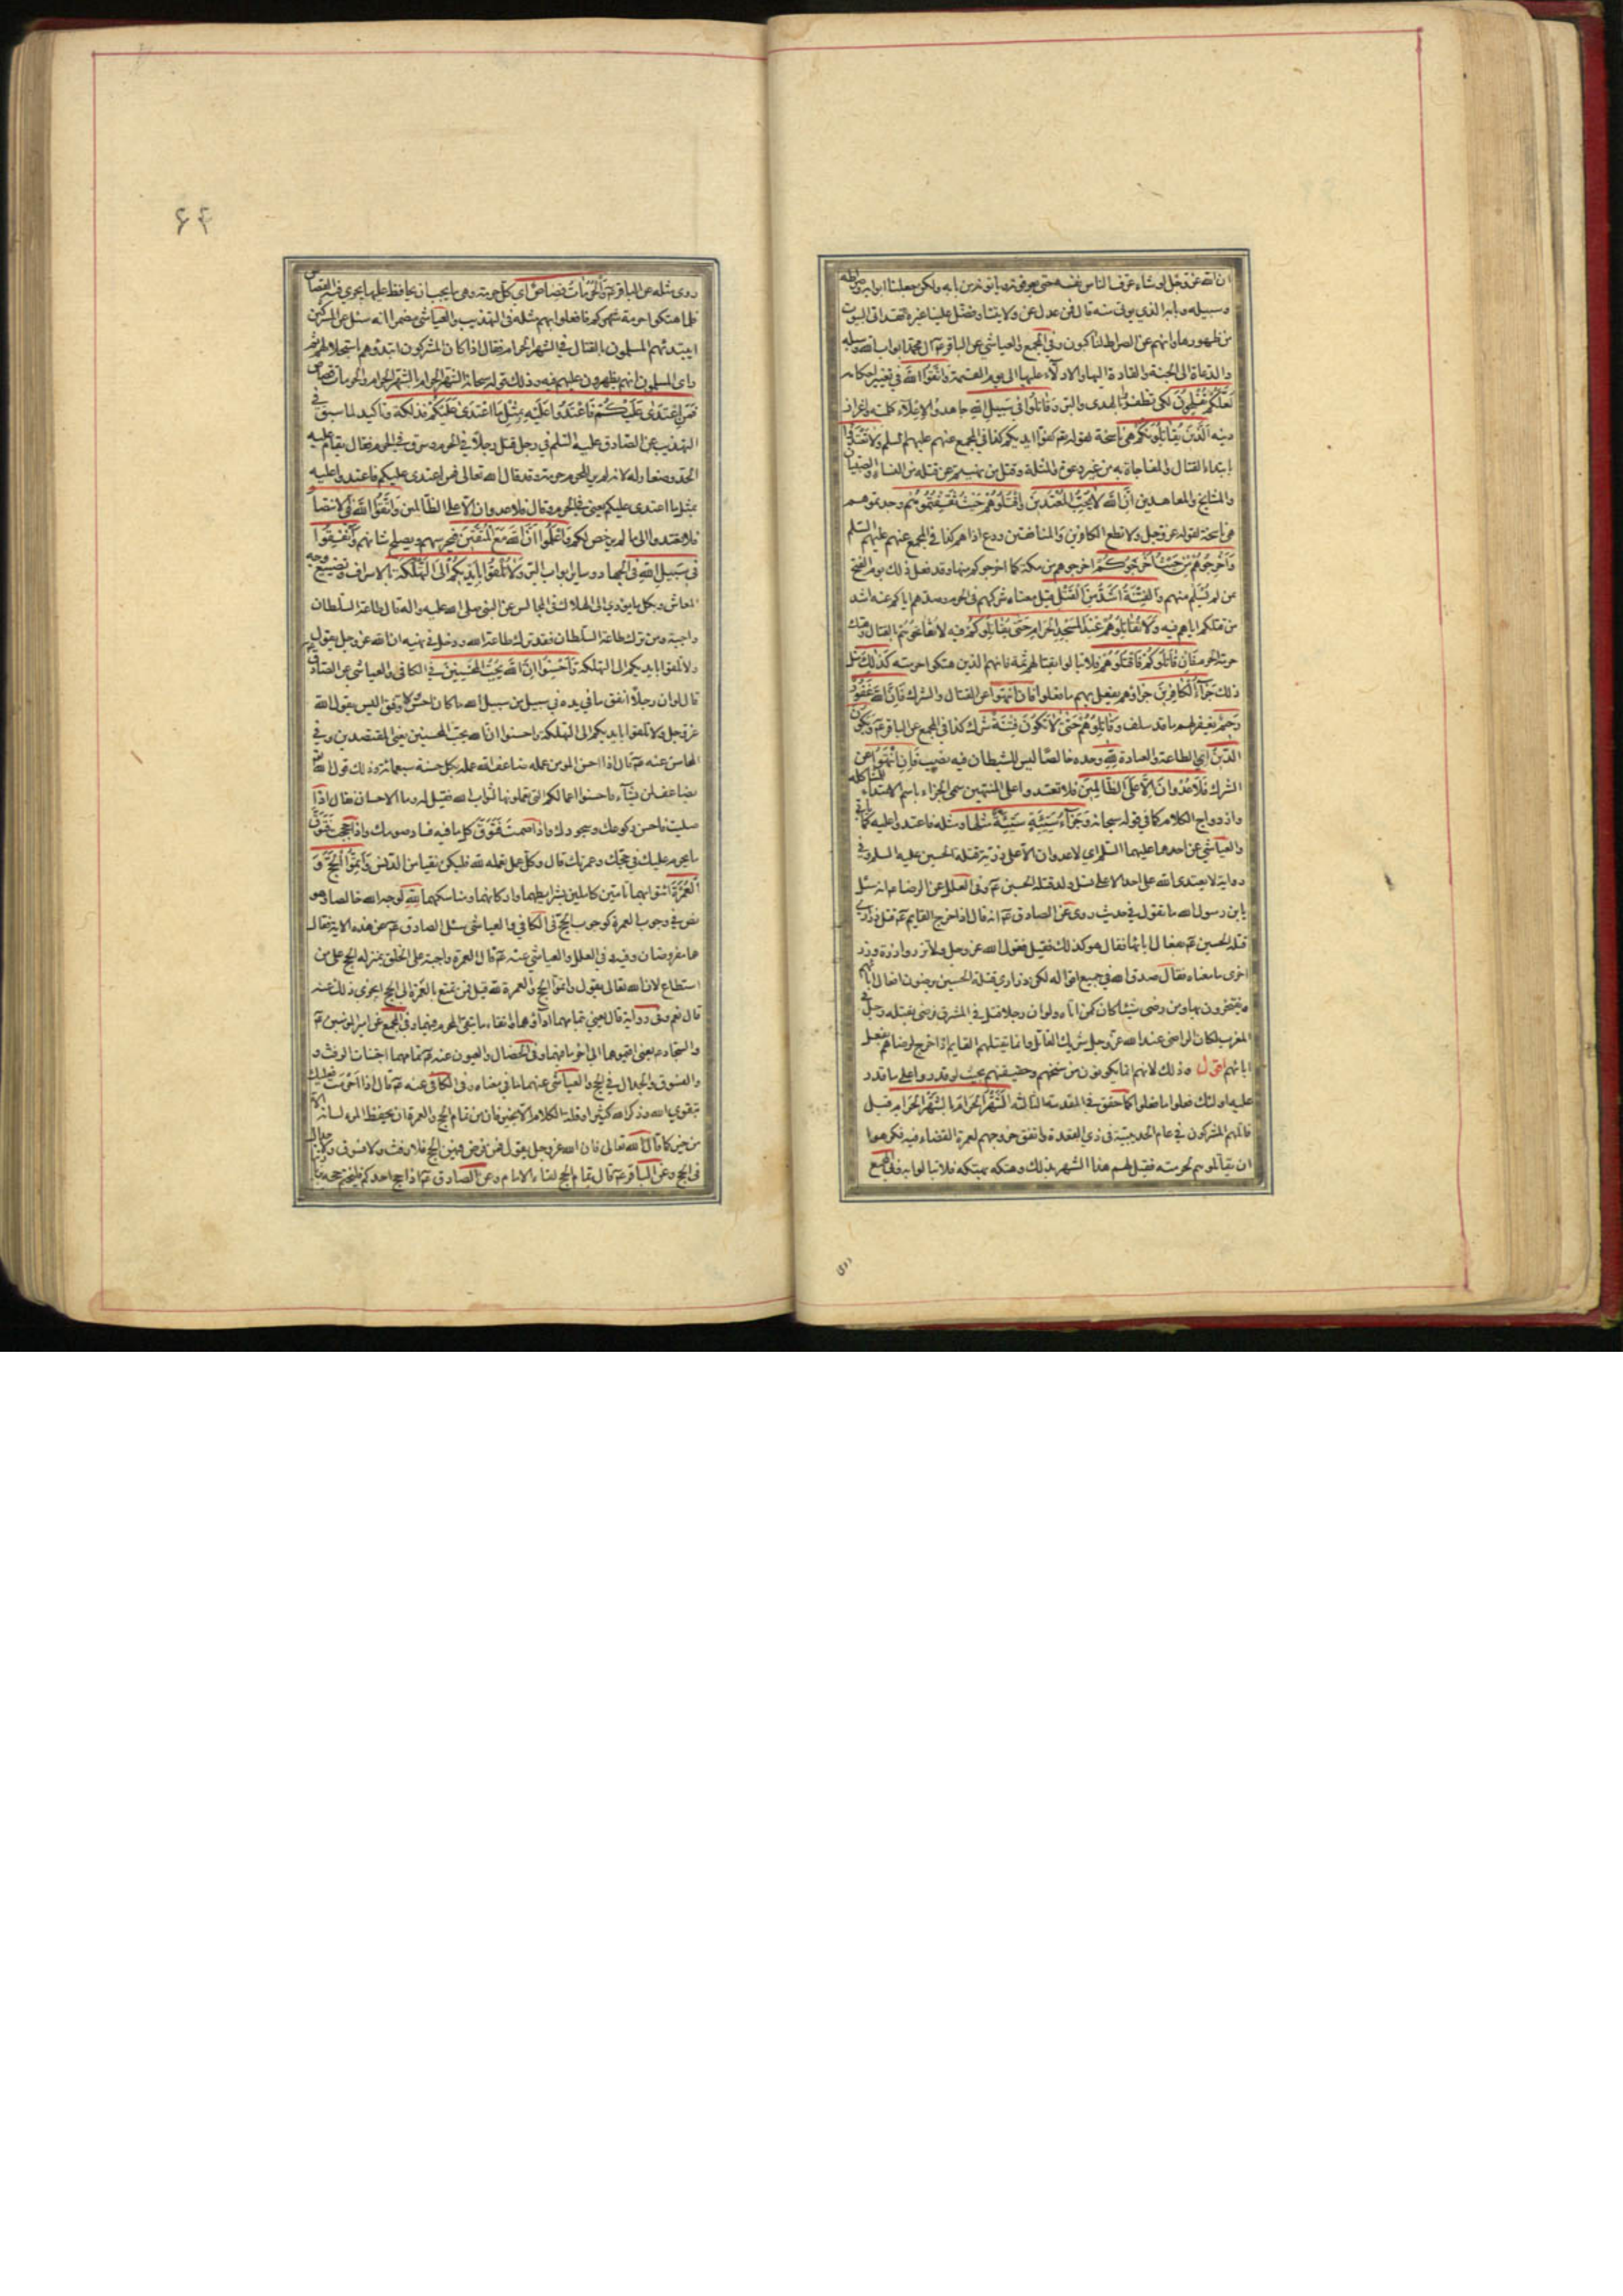 ان الله عز وجل لو شاء عرف الناس نفسه حتى يعرفونه ويأتونه من بابه ولكن جعلنا ابوابه وصراطه
وسبيله وبابه الذي يؤتى منه قال فمن عدل عن ولايتنا وفضل علينا غيرنا فقد اتى البيوت
من ظهورها وانهم عن الصراط لناكبون وفي المجمع والعياشي عن الباقر عم آل محمد ابواب الله وسبيله
والدعاة الى الجنة والقادة اليها والادلاء عليها الى يوم القيمة واتقوا الله في تغيير احكامه
لعلكم تفلحون لكي تظفروا بالهدى والبر وقاتلوا في سبيل الله جاهدوا لاعلاء كلمته واعزاز
دينه الذين يقاتلونكم هي ناسخة لقوله تعم كفوا ايديكم كذا في المجمع عنهم عليهم السلم ولا تعتدوا
بابتداء القتال والمفاجاة به من غير دعوة والمثلة وقتل من نهيتم عن قتله من النساء والصبيان
والمشايخ والمعاهدين ان الله لا يحب المعتدين واقتلوهم حيث ثقفتموهم وجدتموهم
هي ناسخة لقوله عز وجل ولا تطع الكافرين والمنافقين ودع اذاهم كذا في المجمع عنهم عليهم السلم
واخرجوهم من حيث اخرجوكم اخرجوهم من مكة كما اخرجوكم منها وقد فعل ذلك يوم الفتح
من لم يسلم منهم والفتنة اشد من القتل قيل معناه شركهم في الحرم وصدهم اياكم عنه اشد
من قتلكم اياهم فيه ولا تقاتلوهم عند المسجد الحرام حتى يقاتلوكم فيه لا تفاتحوهم القتال وهتك
حرمة الحرم فان قاتلوكم فاقتلوهم فلا تبالوا بقتالهم ثمة فانهم الذين هتكوا حرمته كذلك مثل
ذلك جزآء الكافرين جزاؤهم يفعل بهم ما فعلوا فان انتهوا عن القتال والشرك فان الله غفور
رحيم يغفر لهم ما قد سلف وقاتلوهم حتى لا تكون فتنة شرك كذا في المجمع عن الباقر عم ويكون
الدين اي الطاعة والعبادة لله وحده خالصا ليس للشيطان فيه نصيب فان انتهوا عن
الشرك فلا عدوان الا على الظالمين فلا تعتدوا على المنتهين سمى الجزاء باسم الابتداء للمشاكلة
وازدواج الكلام كما في قوله سبحانه وجزآء سيئة سيئة مثلها ومثله فاعتدوا عليه كما ياتي
والعياشي عن احدهما عليهما السلم اي لا عدوان الا على ذرية قتلة الحسين عليه السلم وفي
رواية لا يعتدى الله على احد الا على نسل ولد قتلة الحسين عم وفي العلل عن الرضا عم انه سئل
يابن رسول الله ما تقول في حديث روي عن الصادق عم انه قال اذا خرج القايم عم قتل ذراري
قتلة الحسين عم بفعال ابائها فقال هو كذلك فقيل فقول الله عز وجل ولا تزر وازرة وزر
اخرى ما معناه فقال صدق الله في جميع اقواله لكن ذراري قتلة الحسين يرضون افعال ابائهم
ويفتخرون بها ومن رضي شيئا كان كمن اتاه ولو ان رجلا قتل في المشرق فرضي بقتله رجل في
المغرب لكان الراضي عند الله عز وجل شريك القاتل وانما يقتلهم القايم اذا خرج لرضاهم بفعل
ابائهم اقول وذلك لانهم انما يكونون من سنخهم وحقيقتهم بحيث لو قدروا على ما قدر
عليه اولئك فعلوا ما فعلوا كما حقق في المقدمة الثالثة الشهر الحرام بالشهر الحرام قيل
قاتلهم المشركون في عام الحديبية في ذي القعدة واتفق خروجهم لعمرة القضاء فيه فكرهوا
ان يقاتلوهم لحرمته فقيل لهم هذا الشهر بذلك وهتكه بهتكه فلا تبالوا به وفي المجمع
روى
۶۴
روى مثله عن الباقر عم والحرمات قصاص اي كل حرمة وهي ما يجب ان يحافظ عليها يجري فيه القصاص
فلما هتكوا حرمة شهركم فافعلوا بهم مثله في التهذيب والعياشي مضمرا انه سئل عن المشركين
ايبتدئهم المسلمون بالقتال في الشهر الحرام فقال اذا كان المشركون ابتدؤهم باستحلالهم ثم
راى المسلمون انهم يظهرون عليهم فيه وذلك قوله سبحانه الشهر الحرام بالشهر الحرام والحرمات قصاص
فمن اعتدى عليكم فاعتدوا عليه بمثل ما اعتدى عليكم فذلكة وتاكيد لما سبق في
التهذيب عن الصادق عليه السلم في رجل قتل رجلا في الحرم وسرق في الحرم فقال يقام عليه
الحد وصغار له لانه لم ير للحرم حرمة وقد قال الله تعالى فمن اعتدى عليكم فاعتدوا عليه
بمثل ما اعتدى عليكم يعني في الحرم وقال فلا عدوان الا على الظالمين واتقوا الله في الانتصار
فلا تعتدوا الى ما لم يرخص لكم واعلموا ان الله مع المتقين فيحرسهم ويصلح شانهم وانفقوا
في سبيل الله في الجهاد وساير ابواب البر ولا تلقوا بايديكم الى التهلكة بالاسراف وتضييع وجه
المعاش وبكل ما يؤدي الى الهلاك في المجالس عن النبي صلى الله عليه واله قال طاعة السلطان
واجبة ومن ترك طاعة السلطان فقد ترك طاعة الله ودخل في نهيه ان الله عز وجل يقول
ولا تلقوا بايديكم الى التهلكة واحسنوا ان الله يحب المحسنين في الكافي والعياشي عن الصادق عم
قال لو ان رجلا انفق ما في يده في سبيل من سبيل الله ما كان احسن ولا وفق اليس يقول الله
عز وجل ولا تلقوا بايديكم الى التهلكة واحسنوا ان الله يحب المحسنين يعني المقتصدين وفي
المحاسن عنه عم قال اذا احسن المؤمن عمله ضاعف الله عمله بكل حسنة سبعمائة وذلك قول الله
يضاعف لمن يشآء فاحسنوا اعمالكم التي تعملونها لثواب الله فقيل له وما الاحسان فقال اذا
صليت فاحسن ركوعك وسجودك واذا صمت فتوق كل ما فيه فساد صومك واذا حججت فتوق
ما يحرم عليك في حجك وعمرتك قال وكل عمل تعمله لله فليكن نقيا من الدنس واتموا الحج و
العمرة ائتوا بهما تامتين كاملين بشرايطهما واركانهما ومناسكهما لله لوجه الله خالصا وهو
نص في وجوب العمرة كوجوب الحج في الكافي والعياشي سئل الصادق عم عن هذه الاية فقال
هما مفروضان وفيه وفي العلل والعياشي عنه عم قال العمرة واجبة على الخلق بمنزلة الحج على من
استطاع لان الله تعالى يقول واتموا الحج والعمرة لله قيل فمن تمتع بالعمرة الى الحج ايجزي ذلك عنه
قال نعم وفي رواية قال يعني بتمامهما اداؤهما واتقاء ما يتقي المحرم فيهما وفي المجمع عن امير المؤمنين عم
والسجاد عم يعني اقيموهما الى اخر ما فيهما وفي الخصال والعيون عنه عم تمامهما اجتناب الرفث و
والفسوق والجدال في الحج والعياشي عنهما ما في معناه وفي الكافي عنه عم قال اذا احرمت فعليك
بتقوى الله وذكر الله كثيرا وقلة الكلام الا بخير فان من تمام الحج والعمرة ان يحفظ المرء لسانه الا
من خير كما قال الله تعالى فان الله عز وجل يقول فمن فرض فيهن الحج فلا رفث ولا فسوق ولا جدال
في الحج وعن الباقر عم قال تمام الحج لقاء الامام وعن الصادق عم اذا حج احدكم فليختم حجه